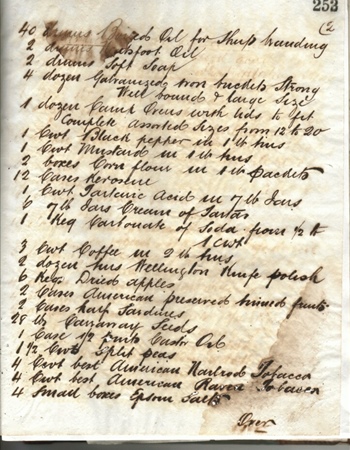 253
(2
40 drums Boiled Oil for Sheep branding
2 drums Neatsfoot Oil
2 drums Soft Soap
4 dozen Galvanized iron buckets Strong
Well bound & large Size
1 dozen Camp Ovens with lids to fit
Complete Assorted Sizes from 12 to 20
1 Cwt Black pepper in 1 lb tins
1 Cwt Mustard in 1 lb tins
2 boxes Corn flour in 1 lb packets
12 Cases Kerosene
1 Cwt Tartaric Acid in 7 lb Jars
6 7 lb Jars Cream of Tartar
1 Keg Carbonate of Soda from 1/2 to
1 Cwt
3 Cwt Coffee in 2 lb tins
2 dozen tins Wellington Knife polish
6 Kegs Dried apples
2 Cases American preserved tinned fruits
2 Cases half Sardines
28 lb Cannary Seeds
1 Case 1/2 pints Castor Oil
1 1/2 Cwt Split peas
1 Cwt best American Nailrod Tobacco
4 Cwt best American Raven Tobacco
4 Small boxes Epsom Salts
Over